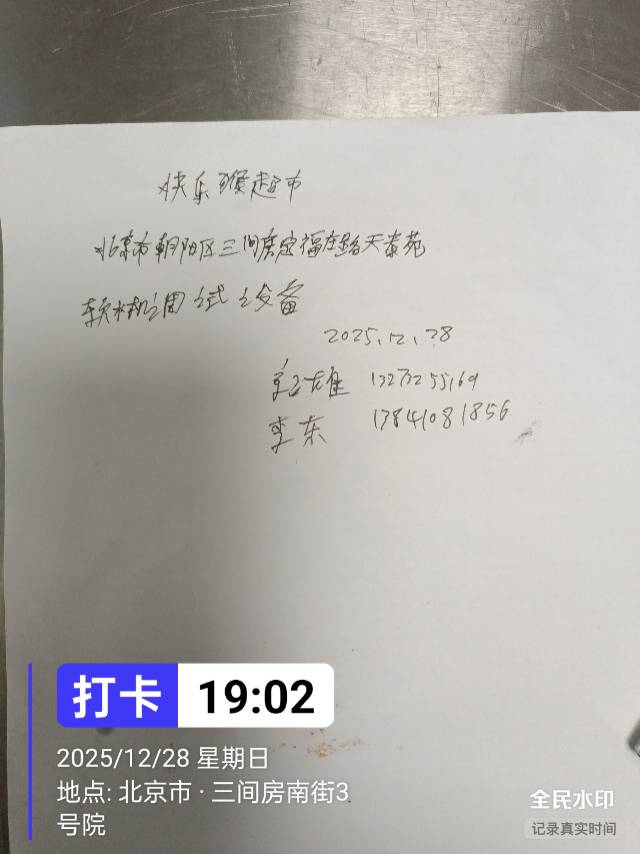 快乐猴超市
北京市朝阳区三间房定福庄路天泰苑
软水机调试设备
2025.12.28
雄
李东 13841081856
打卡 19:02
2025/12/28 星期日
地点: 北京市 · 三间房南街3
号院
全民水印
记录真实时间